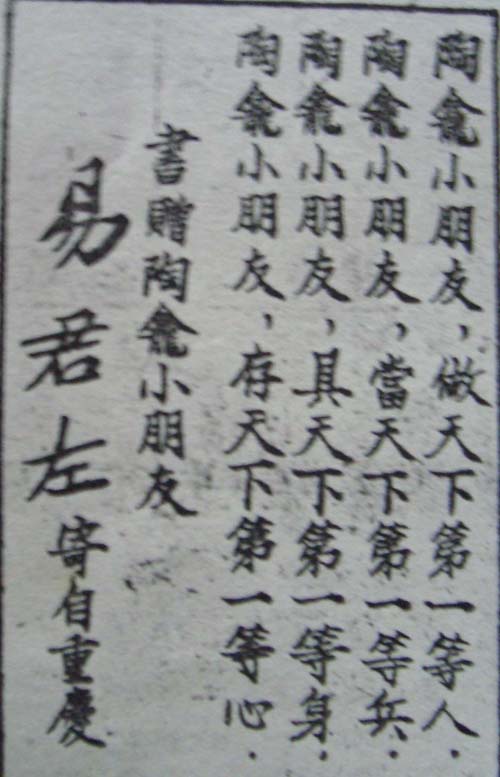 陶龕小朋友，做天下第一等人．
陶龕小朋友，當天下第一等兵．
陶龕小朋友，具天下第一等身．
陶龕小朋友，存天下第一等心．
書贈陶龕小朋友
易君左寄自重慶